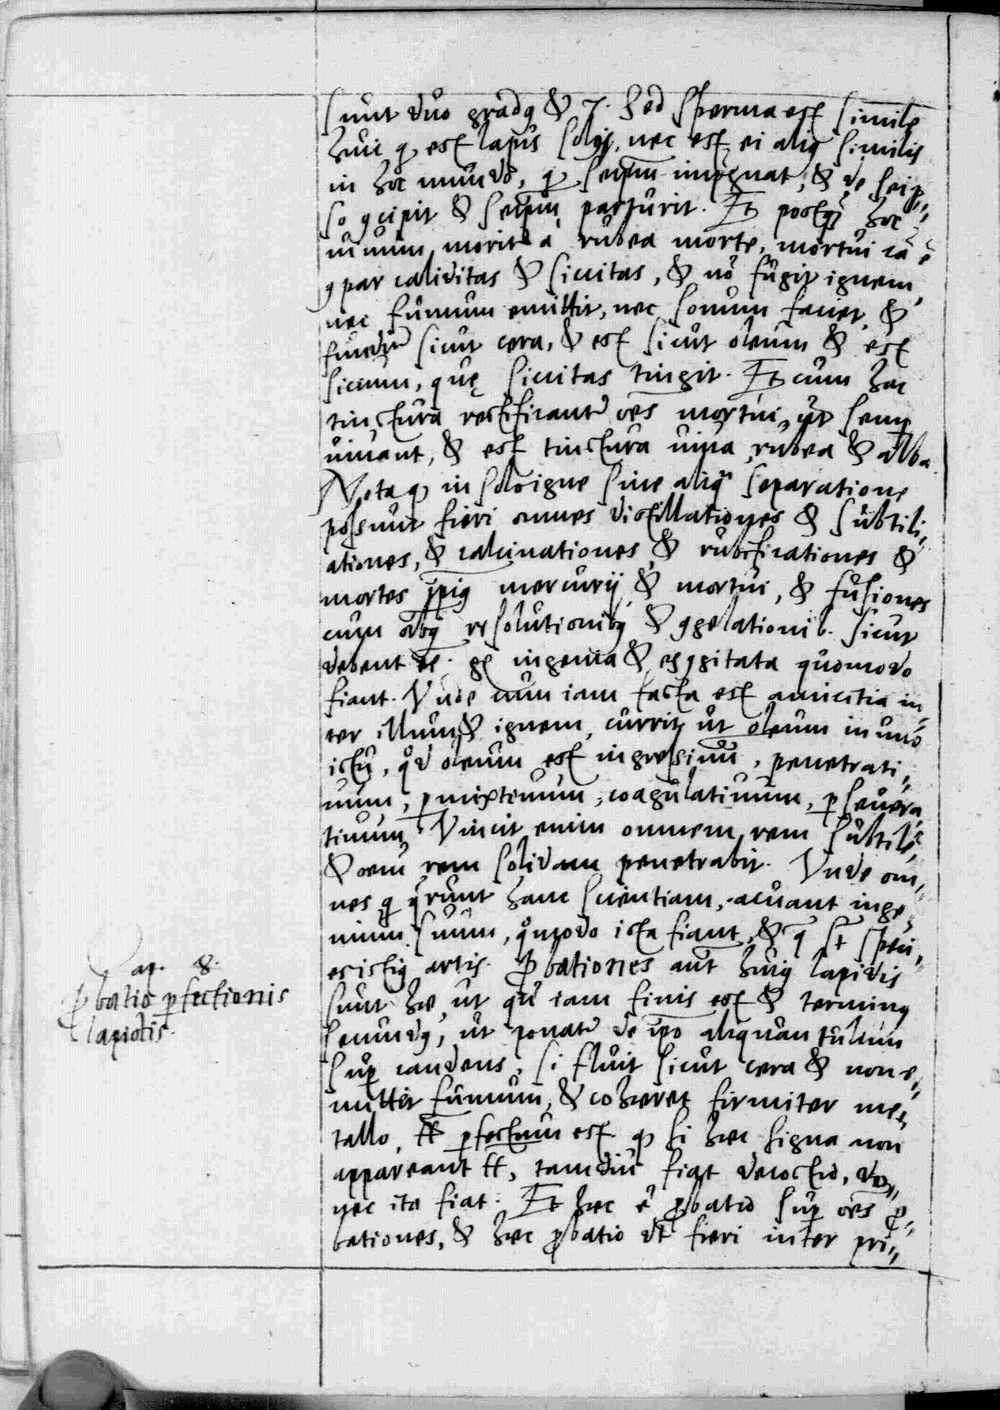 sunt duo gradꝰ & 7. Sed Sperma est simile
huic qͥ est lapis solꝰ, nec est ei aliqͥ similis
in hoc mundo, qͥ seipm̄ impgnat, & de seip=
so ꝯcipit & seipm̄ parturit. Et postqͣ hoc
uinum, moritr a rubea morte, mortui
ꝯpar caliditas & siccitas, & nō fugit ignem,
nec fumum emittit, nec sonum faciet, &
funditr sicut cera, & est sicut oleum & est
siccum, quę siccitas tingit. Et cum hac
tinctura rectificantr oēs mortui, ut semp
uiuant, & est tinctura uiua, rubea & alba.
Nota qͥ in solo igne sine aliqͣ separatione
possunt fieri omnes distillationes & subtili=
ationes, & calcinationes, & rubificationes &
mortes ipsiꝰ mercurij, & mortui, & fusiones
cum oībꝰ resolutionibꝰ & ꝯgelationib. sicut
debent ingenia & excogitata quomodo
fiant. Unde cum iam facta est amicitia in=
ter illum & ignem, currit ut oleum in uno
ictu, qd oleum est ingressiuū, penetrati=
uum, pmixtiuum, coagulatiuum, pseuera=
tiuum. Vincit enim omnem rem subtilē
& oem rem solidam penetrabit. Unde om=
nes qͥ qrunt hanc scientiam, acuant inge=
nium suum, quomodo ista fiant, &
artis. Probationes aut huiꝰ lapidis
sunt hæ, ut qn iam finis est & terminꝰ
secundꝰ, ut ponatr de ipo aliquantulum
sup candens, si fluit sicut cera & non e=
mittit fumum, & cohæret firmiter me=
tallo, pfectum est qͥ si hæc signa non
appareant tamdiu fiat decoctio, do=
nec ita fiat. Et hæc ē probatio sup oēs pro=
bationes, & hæc probatio dt fieri inter pri=
Cap. 8.
Probatio pfectionis
lapidis.